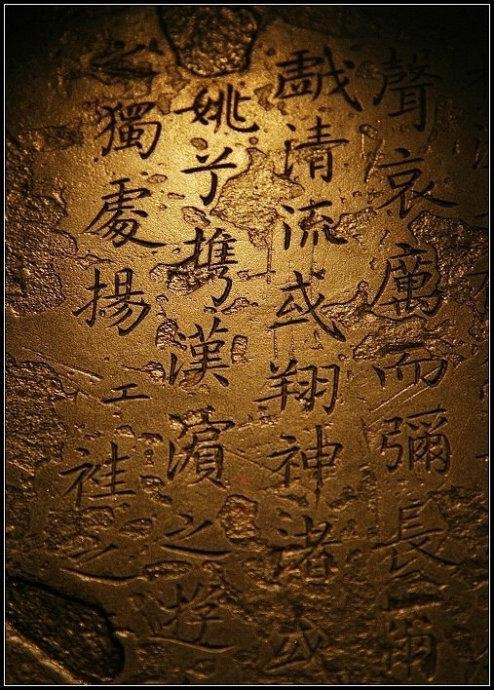 聲哀厲而彌長爾
戯清流或翔神渚或
姚兮携漢濱之遊
之獨處揚袿之